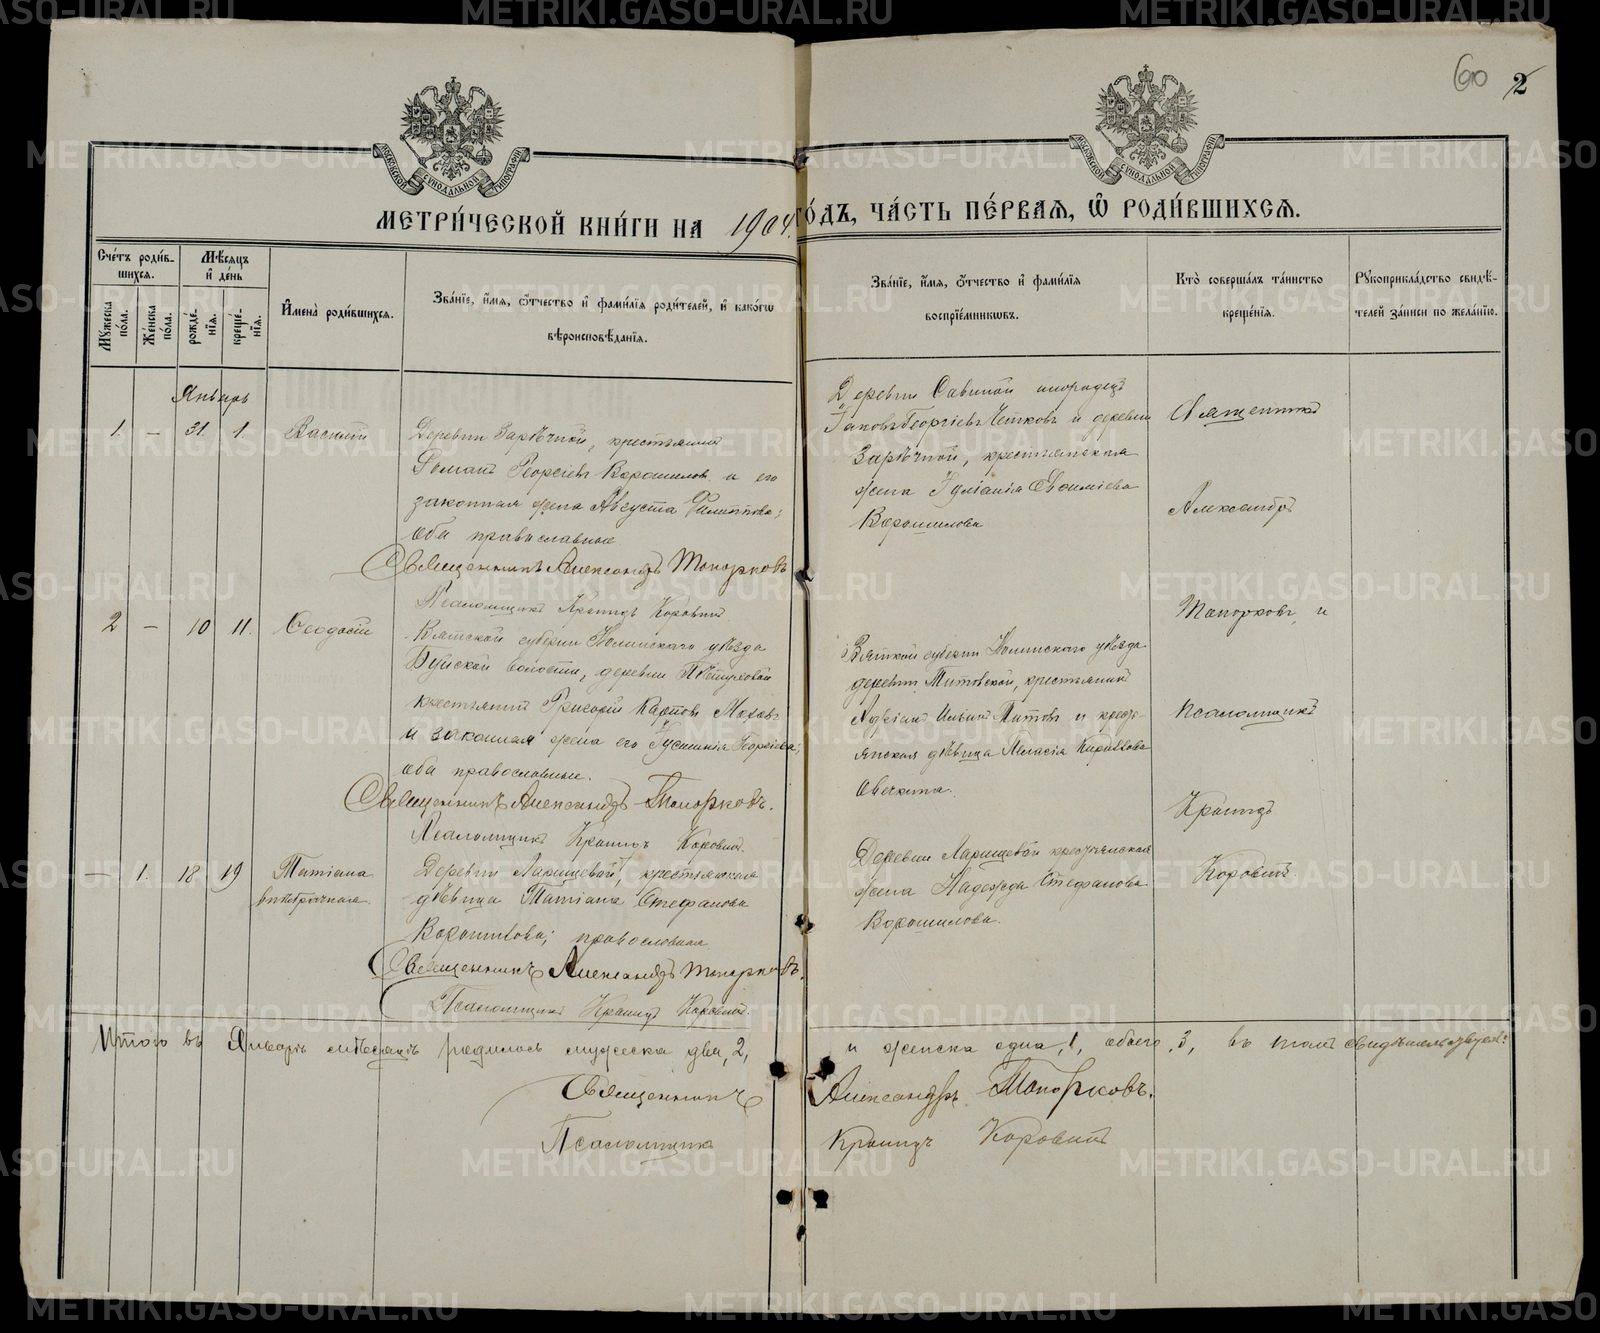 690 2
МОСКОВСКОЙ СѴНОДАЛЬНОЙ ТИПОГРАФІИ
МОСКОВСКОЙ СѴНОДАЛЬНОЙ ТИПОГРАФІИ
МЕТРИ́ЧЕСКОЙ КНИ́ГИ НА 1904 ГО́ДЪ, ЧА́СТЬ ПЕ́РВАЯ, Ѽ РОДИ́ВШИХСЯ.
Сче́тъ роди́в-
шихся.
Му́жеска по́ла.
Же́нска по́ла.
Мѣ́сяцъ
и҆ де́нь
рожде́-
нїя.
креще́-
нїя.
И҆мена̀ роди́вшихся.
Зва́нїе, и҆́мя, ѻ҆́тчество и҆ фами́лїя роди́телей, и҆ како́гѡ
вѣроисповѣ́данїя.
Зва́нїе, и҆́мя, ѻ҆́тчество и҆ фами́лїя
воспрїе́мникѡвъ.
Кто̀ соверша́лъ та́инство
креще́нїя.
Рꙋкоприкла́дство свидѣ́-
телей за́писи по жела́нїю.
Январь
1. – 31. 1. Василій
Деревни Зарѣчной, крестьянинъ
Романъ Георгіевъ Ворошиловъ и его
законная жена Августа Филиппова;
оба православные
Священникъ Александръ Топорковъ
Псаломщикъ Кронидъ Коровинъ
Деревни Савиной инородецъ
Іаковъ Георгіевъ Четковъ и деревни
Зарѣчной, крестьянская
жена Іуліанія Евѳиміева
Ворошилова
Священникъ
Александръ
Топорковъ, и
Псаломщикъ
Кронидъ
Коровинъ.
2 – 10 11. Ѳеодосій
Вятской губерніи Нолинскаго уѣзда
Буйской волости, деревни
крестьянинъ Григорій Карповъ
и законная жена его Іустинія Георгіева;
оба православные.
Священникъ Александръ Топорковъ.
Псаломщикъ Кронидъ Коровинъ.
Вятской губерніи Нолинскаго уѣзда
деревни Титовской, крестьянинъ
Адріанъ Ильинъ Титовъ и кресть-
янская дѣвица Пелагія
Овечкина.
– 1. 18 19 Татіана
внѣбрачная
Деревни Ларищевой, крестьянская
дѣвица Татіана Стефанова
Ворошилова; православная
Священникъ Александръ Топорковъ.
Псаломщикъ Кронидъ Коровинъ.
Деревни Ларищевой крестьянская
жена Надежда Стефанова
Ворошилова.
Итого въ Январѣ мѣсяцѣ родилось мужеска два, 2, и женска одна, 1, обоего, 3, въ томъ свидѣтельствуемъ:
Священникъ Александръ Топорковъ.
Псаломщикъ Кронидъ Коровинъ
METRIKI.GASO-URAL.RU